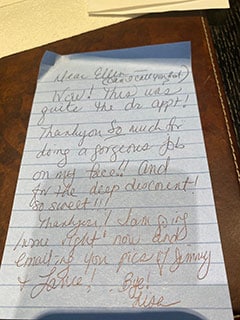 Dear Ellen
Wow! This was
quite the dr. appt!
Thankyou so much for
doing a gorgeous job
on my face!! And
for the deep discount!
So sweet!!!
Thankyou! I am going
home right now and
emailing you pics of Jimmy
&
Bye!
Lise